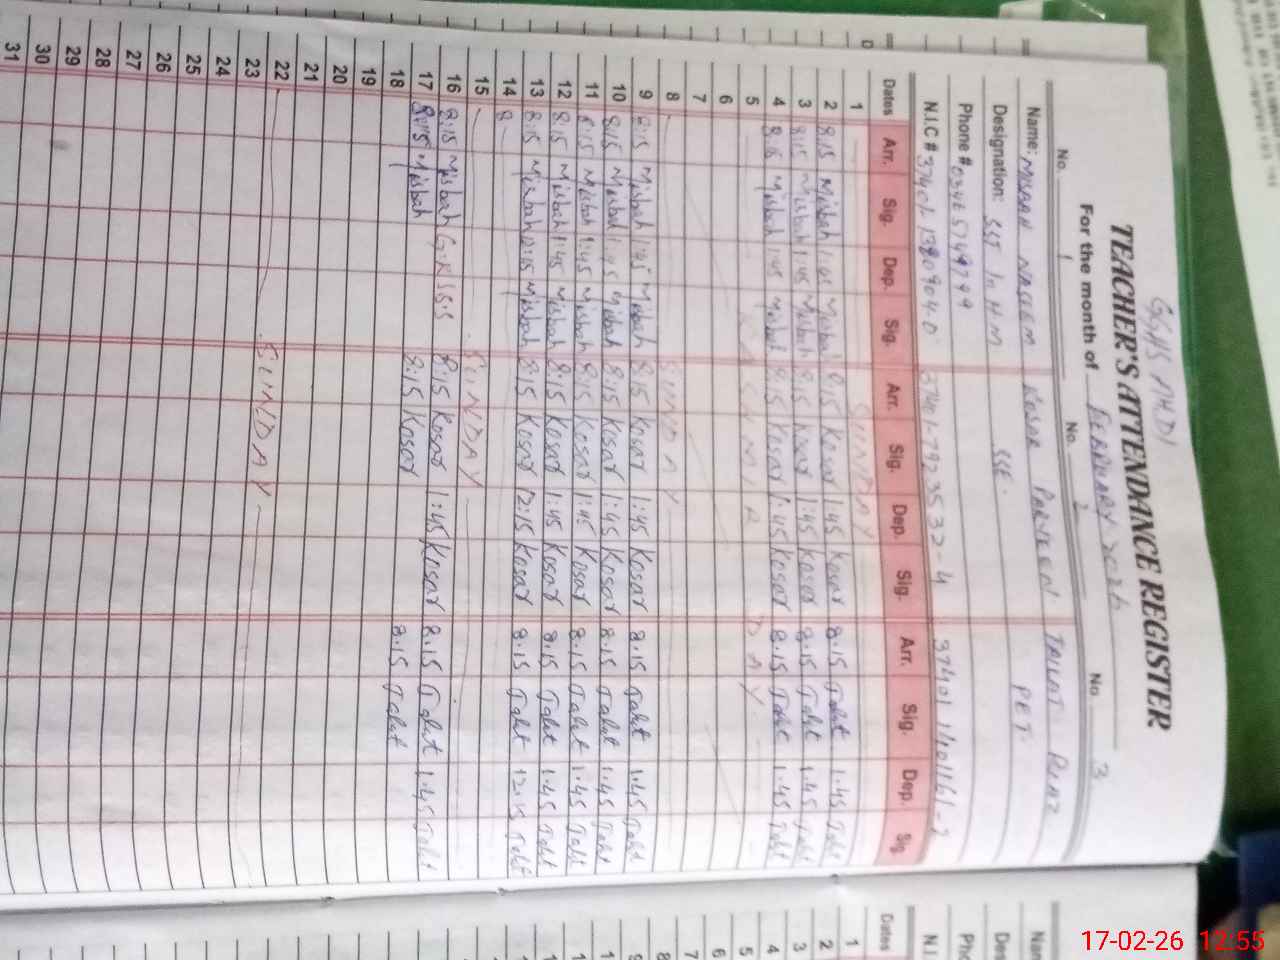 TEACHER'S ATTENDANCE REGISTER
For the month of FEBRUARY 2026
No. 1 No. 2 No. 3
Name: MISBAH NASEEM KOSAR PARVEEN TALLAT RIAZ
Designation: SST In H.M SSE. PET
Phone #
N.I.C #
Dates Arr. Sig. Dep. Sig. Arr. Sig. Dep. Sig. Arr. Sig. Dep. Sig.
1 SUNDAY
2 8:15 Misbah 1:45 Misbah 8:15 Kosar 1:45 Kosar 8.15 Talat 1.45 Talt
3 8:15 Misbah 1:45 Misbah 8:15 Kosar 1:45 Kosar 8.15 Talt 1.45 Talt
4 8:15 Misbah 1:45 Misbah 8:15 Kosar 1:45 Kosar 8.15 Talt 1.45 Talt
5 DAY
6
7
8 SUNDAY
9 8:15 Misbah 1:45 Misbah 8:15 Kosar 1:45 Kosar 8.15 Talat 1.45 Talt
10 8:15 Misbah 1:45 Misbah 8:15 Kosar 1:45 Kosar 8.15 Talat 1.45 Talt
11 8:15 Misbah 1:45 Misbah 8:15 Kosar 1:45 Kosar 8.15 Talat 1.45 Talt
12 8:15 Misbah 1:45 Misbah 8:15 Kosar 1:45 Kosar 8.15 Talat 1.45 Talt
13 8:15 Misbah 12:15 Misbah 8:15 Kosar 12:15 Kosar 8.15 Talat 12.15 Talt
14 8
15 SUNDAY
16 8:15 Misbah 8:15 Kosar 1:45 Kosar 8.15 Talat 1.45 Talt
17 8:15 Misbah 8:15 Kosar 8.15 Talat
18
19
20
21
22 SUNDAY
23
24
25
26
27
28
29
30
31
Dates
1
2
3
4
5
6
7
8
17-02-26 12:55